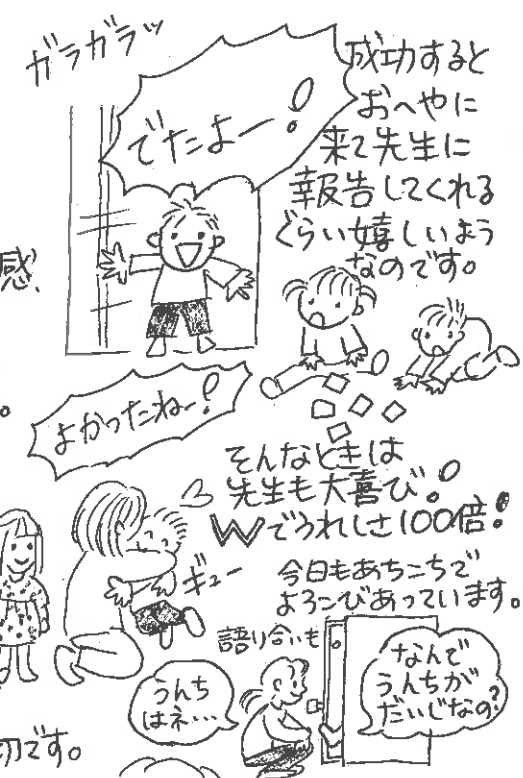 ガラガラッ
でたよー!
成功すると
おへやに
来て先生に
報告してくれる
ぐらい嬉しいよう
なのです。
感、
よかったねー!
。
そんなときは
先生も大喜び!
Wでうれしさ100倍!
ギュー
今日もあちこちで
よろこびあっています。
語り合いも
うんち
はネ…
なんで
うんちが
だいじなの?
切です。